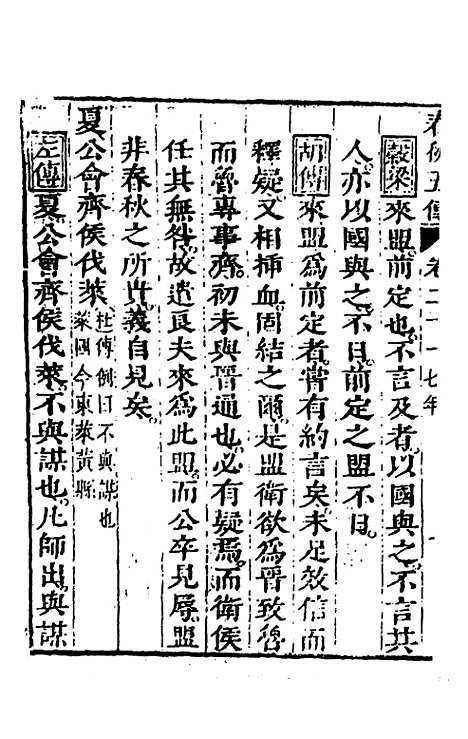 春秋五傳 卷二十一 七年
穀梁 來盟前定也不言及者以國與之不言其
人亦以國與之不日前定之盟不日
胡傳 來盟爲前定者嘗有約言矣未足效信而
釋疑又相揷血固結之爾是盟衛欲爲晉致魯
而魯專事齊初未與晉通也必有疑焉而衛侯
任其無咎故遣良夫來爲此盟而公卒見辱盟
非春秋之所貴義自見矣
夏公會齊侯伐萊 杜傳例曰不與謀也
萊國今東萊黃縣
左傳 夏公會齊侯伐萊不與謀也凡師出與謀